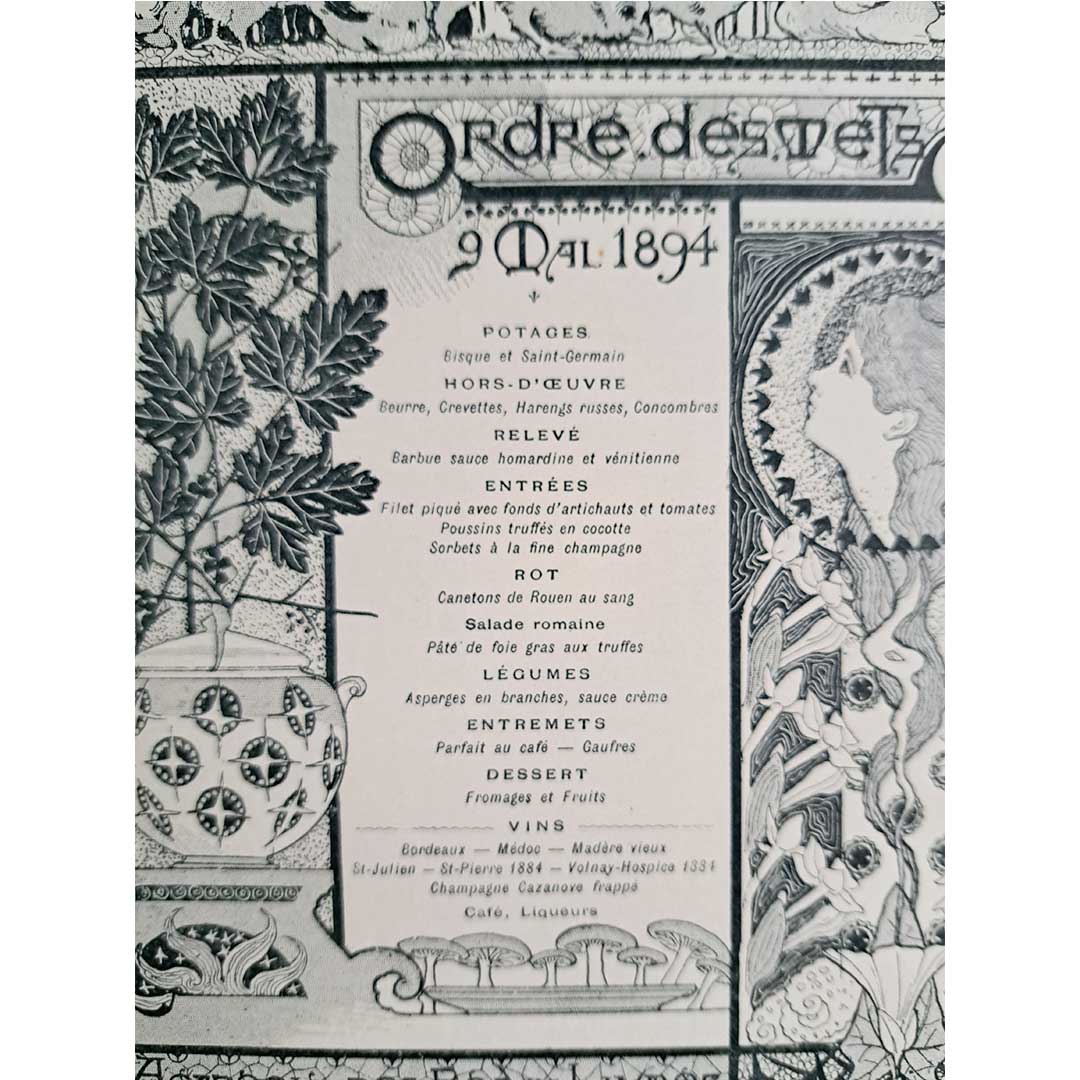 Ordre des mets
9 Mai 1894
POTAGES
Bisque et Saint-Germain
HORS-D'ŒUVRE
Beurre, Crevettes, Harengs russes, Concombres
RELEVÉ
Barbue sauce homardine et vénitienne
ENTRÉES
Filet piqué avec fonds d'artichauts et tomates
Poussins truffés en cocotte
Sorbets à la fine champagne
ROT
Canetons de Rouen au sang
Salade romaine
Pâté de foie gras aux truffes
LÉGUMES
Asperges en branches, sauce crème
ENTREMETS
Parfait au café — Gaufres
DESSERT
Fromages et Fruits
VINS
Bordeaux — Médoc — Madère vieux
St-Julien — St-Pierre 1884 — Volnay-Hospice 1884
Champagne Cazanove frappé
Café, Liqueurs